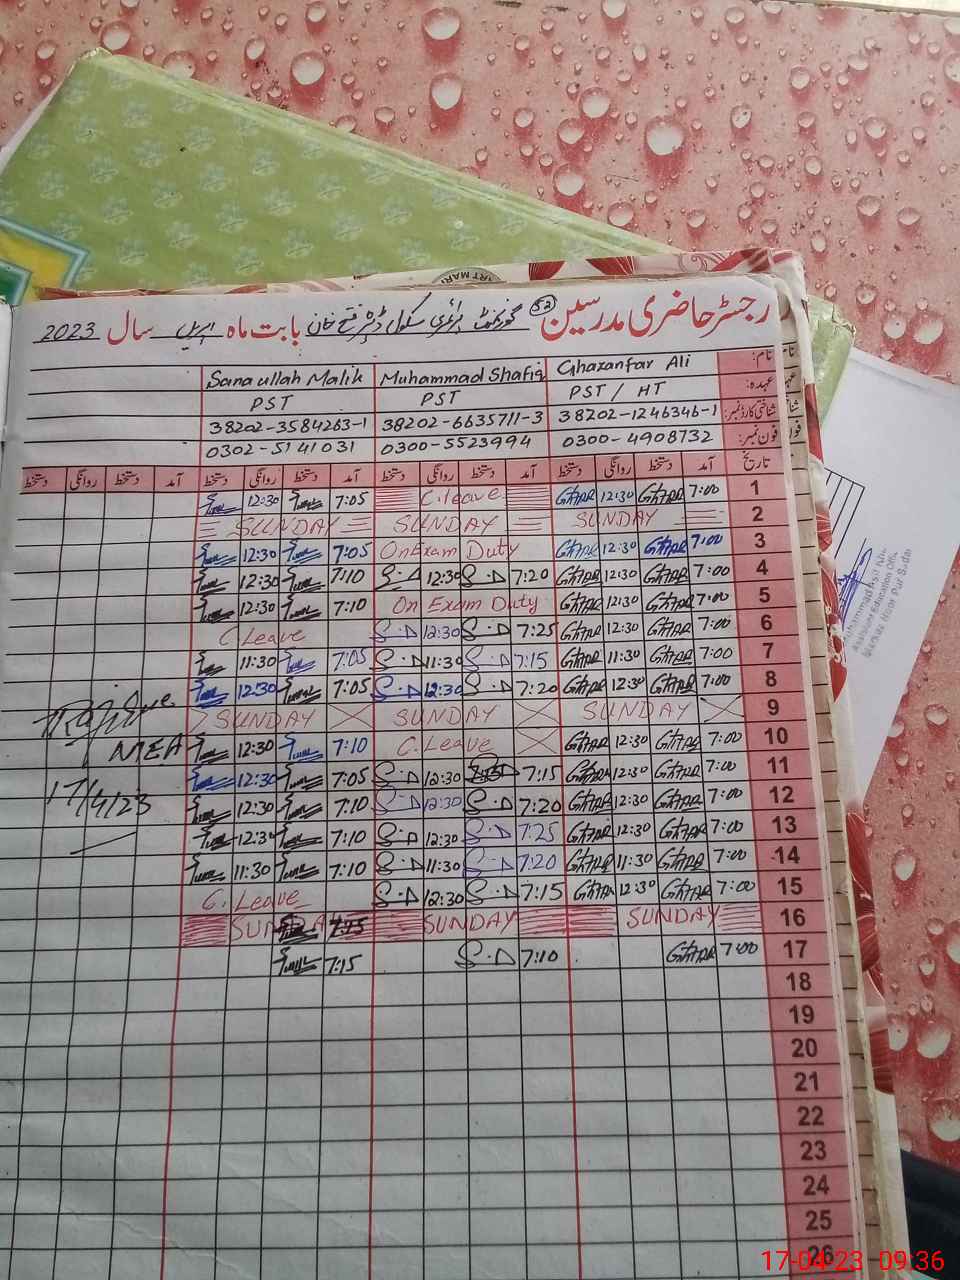 رجسٹر حاضری مدرسین 52 گورنمنٹ پرائمری سکول ڈیرہ فتح خان بابت ماہ اپریل سال 2023
نام: Ghazanfar Ali Muhammad Shafiq Sanaullah Malik
عہدہ: PST / HT PST PST
شناختی کارڈ نمبر: 38202-1246346-1 38202-6635711-3 38202-3584263-1
فون نمبر: 0300-4908732 0300-5523994 0302-5141031
تاریخ آمد دستخط روانگی دستخط آمد دستخط روانگی دستخط آمد دستخط روانگی دستخط آمد دستخط روانگی دستخط
12:30 7:05 C.leave 12:30 7:00 1
SUNDAY SUNDAY SUNDAY 2
12:30 7:05 On Exam Duty 12:30 7:00 3
12:30 7:10 S.D 12:30 S.D 7:20 12:30 7:00 4
12:30 7:10 On Exam Duty 12:30 7:00 5
C.Leave S.D 12:30 S.D 7:25 12:30 7:00 6
11:30 7:05 S.D 11:30 S.D 7:15 11:30 7:00 7
12:30 7:05 S.D 12:30 S.D 7:20 12:30 7:00 8
SUNDAY SUNDAY SUNDAY 9
MEA 12:30 7:10 C.Leave 12:30 7:00 10
12:30 7:05 S.D 12:30 7:15 12:30 7:00 11
17/4/23 12:30 7:10 S.D 12:30 S.D 7:20 12:30 7:00 12
12:30 7:10 S.D 12:30 S.D 7:25 12:30 7:00 13
11:30 7:10 S.D 11:30 S.D 7:20 11:30 7:00 14
C.Leave S.D 12:30 S.D 7:15 12:30 7:00 15
SUNDAY 7:15 SUNDAY SUNDAY 16
7:15 S.D 7:10 7:00 17
18
19
20
21
22
23
24
25
26
Assistant Education Officer
17-04-23 09:36